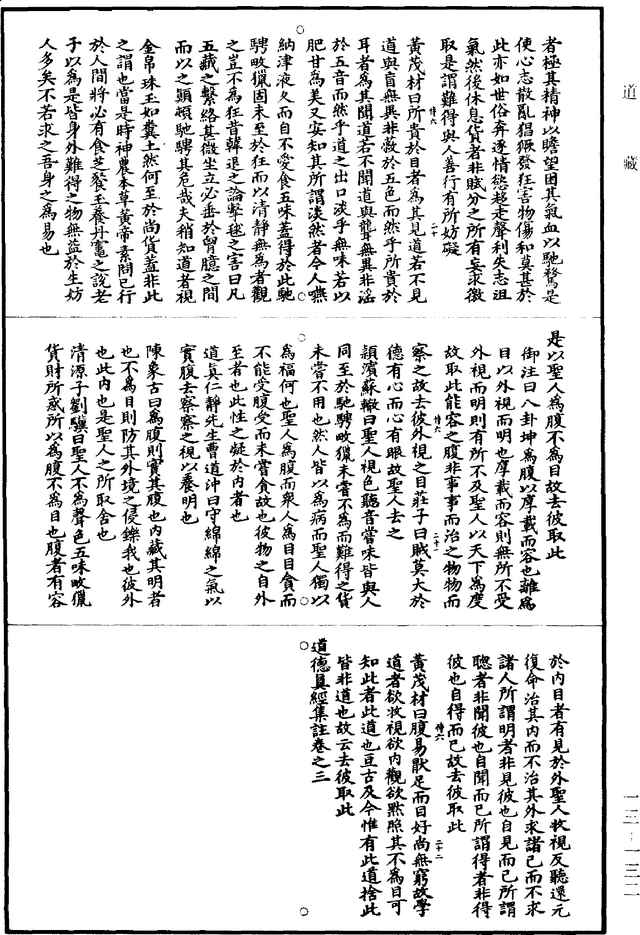 道藏
者極其精神以瞻望困其氣血以馳騖是
使心志散亂猖獗發狂害物傷和莫甚於
此亦如世俗奔逐情慾趨走聲利失志沮
氣然後休息貨者非賦分之所有妄求徼
取是謂難得與人善行有所妨礙
黃茂材曰所貴於目者為其見道若不見
道與盲無異非蔽於五色而然乎所貴於
耳者為其聞道若不聞道與聾無異非淫
於五音而然乎道之出口淡乎無味若以
肥甘為美又安知其所謂淡然者令人嚥
納津液久而自不愛食五味蓋得於此馳
騁畋獵固未至於狂而以清靜無為者觀
之豈不為狂昔韓退之論擊毬之害曰凡
五藏之繫絡甚微坐立必垂於胷臆之間
而以之顛頓馳騁其危哉夫稍知道者視
金帛珠玉如糞土然何至於尚貨蓋非此
之謂也當是時神農本草黃帝素問已行
於人間將必有食芝餐玉養丹竈之說老
子以為是皆身外難得之物無益於生妨
人多矣不若求之吾身之為易也
是以聖人為腹不為目故去彼取此
御注曰八卦坤為腹以厚載而容也離為
目以外視而明也厚載而容則無所不受
外視而明則有所不及聖人以天下為度
故取此能容之腹非事事而治之物物而
察之故去彼外視之目莊子曰賊莫大於
德有心而心有眼故聖人去之
潁濱蘇轍曰聖人視色聽音嘗味皆與人
同至於馳騁畋獵未嘗不為而難得之貨
未嘗不用也然人皆以為病而聖人獨以
為福何也聖人為腹而眾人為目目貪而
不能受腹受而未嘗貪故也彼物之自外
至者也此性之凝於內者也
道真仁靜先生曹道沖曰守綿綿之氣以
實腹去察察之視以養明也
陳象古曰為腹則實其腹也內藏其明者
也不為目則防其外境之侵鑠我也彼外
也此內也是聖人之所取舍也
清源子劉驥曰聖人不為聲色五味畋獵
貨財所惑所以為腹不為目也腹者有容
於內目者有見於外聖人收視反聽還元
復命治其內而不治其外求諸己而不求
諸人所謂明者非見彼也自見而已所謂
聰者非聞彼也自聞而已所謂得者非得
彼也自得而已故去彼取此
黃茂材曰腹易猒足而目好尚無窮故學
道者欲收視欲內觀欲默照其不為目可
知此者此道也亘古及今惟有此道捨此
皆非道也故云去彼取此
道德真經集註卷之三
二十
二十一
二十二
一三—一三二